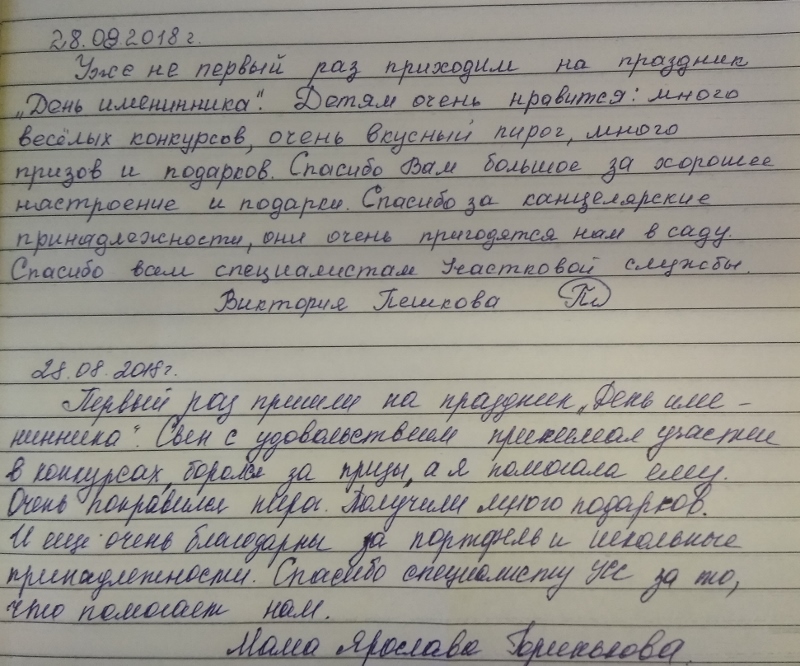 28.08.2018 г.
Уже не первый раз приходим на праздник
„День именинника“. Детям очень нравится: много
весёлых конкурсов, очень вкусный пирог, много
призов и подарков. Спасибо Вам большое за хорошее
настроение и подарки. Спасибо за канцелярские
принадлежности, они очень пригодятся нам в саду.
Спасибо вам специалистам Участковой службы.
Виктория Пешкова
28.08.2018г.
Первый раз пришли на праздник „День име-
нинника“. Сын с удовольствием принимал участие
в конкурсах, боролся за призы, а я помогала ему.
Очень понравился пирог. Получили много подарков.
И еще очень благодарны за портфель и школьные
принадлежности. Спасибо специалисту УСС за то,
что помогает нам.
Мама Ярослава